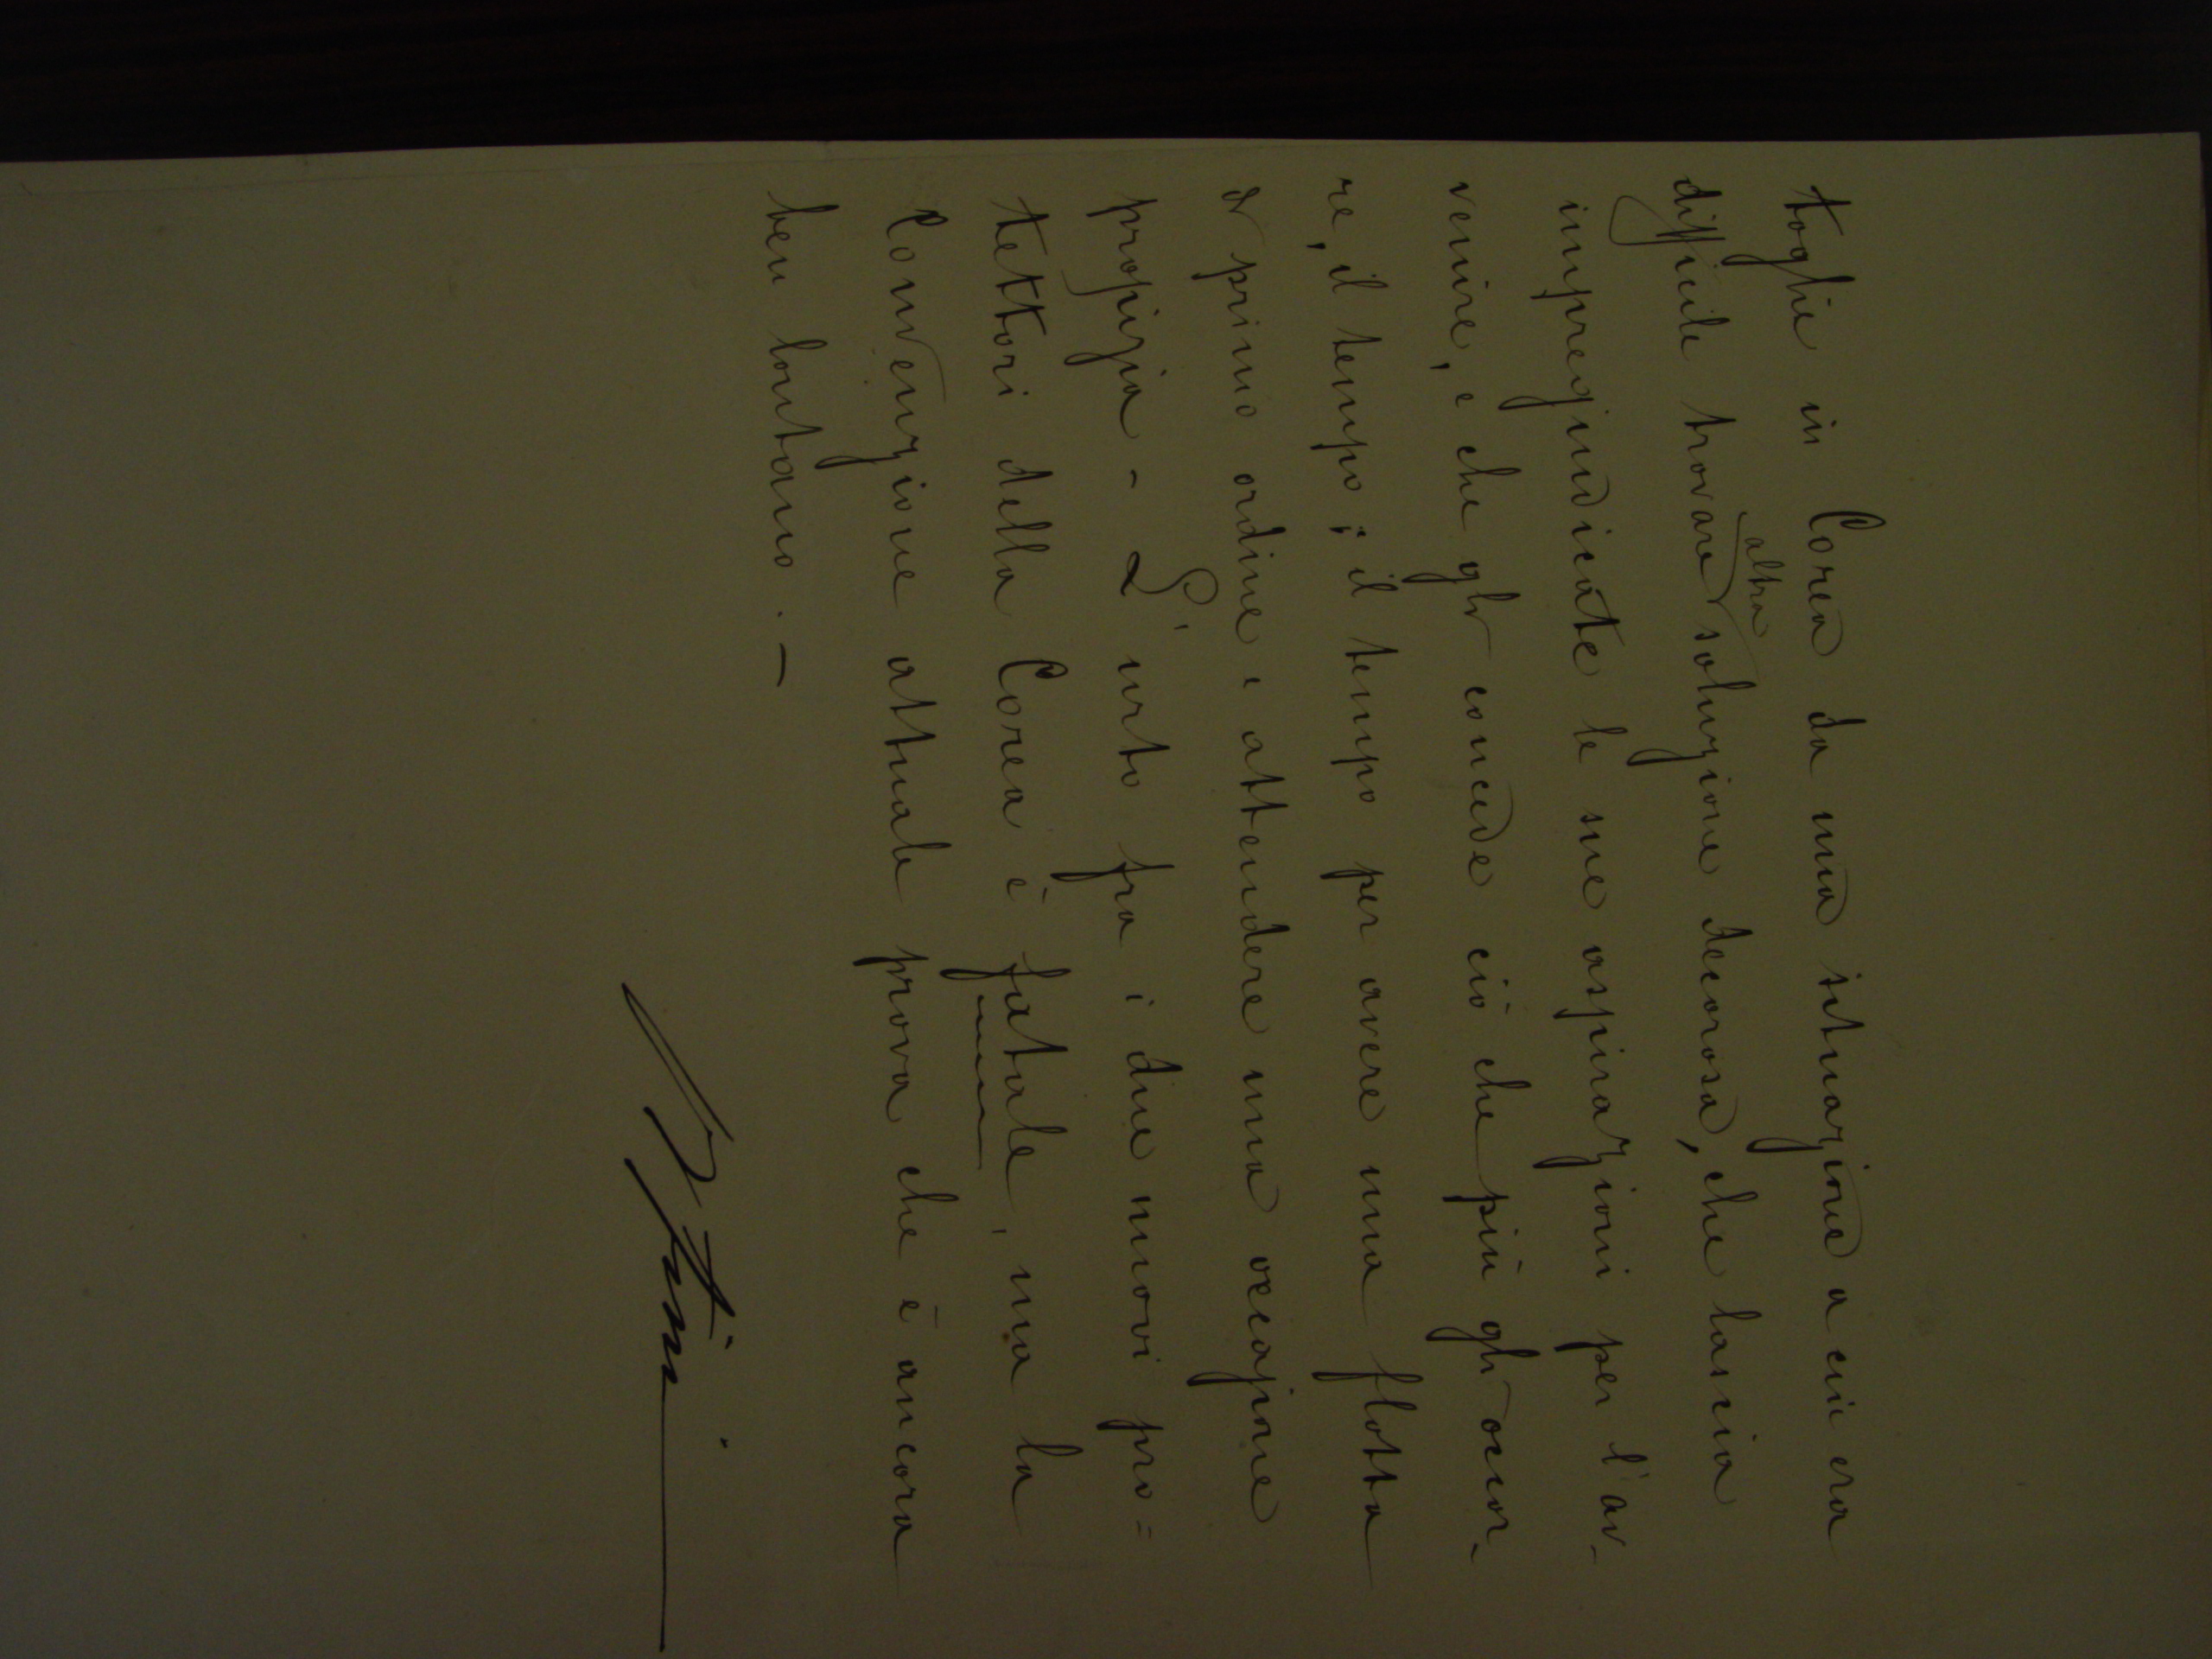 toglie in Corea da una situazione a cui era
difficile trovare altra soluzione decorosa, che lascia
impregiudicate le sue aspirazioni per l'av-
venire, e che gli concede ciò che più gli occor-
re, il tempo; il tempo per avere una flotta
di primo ordine e attendere una occasione
propizia - L'urto fra i due nuovi pro=
tettori della Corea è fatale, ma la
Convenzione attuale prova che è ancora
ben lontano. —